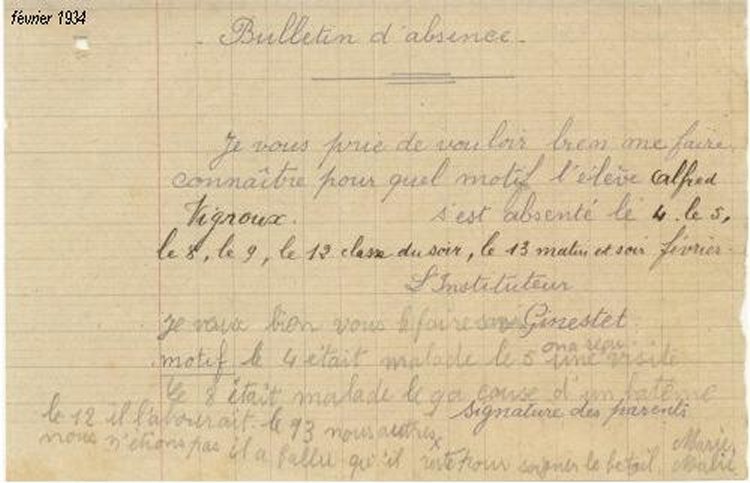 février 1934
- Bulletin d'absence -
Je vous prie de vouloir bien me faire
connaître pour quel motif l'élève Alfred
Vigroux. s'est absenté le 4. le 5,
le 8, le 9, le 12 classe du soir, le 13 matin et soir février.
L'Instituteur
Je veux bien vous le faire Ginestet
on a reçu
motif le 4 était malade le 5 une visite
le 8 était malade le 9 a couse d'un batême
signature des parents
le 12 il labourait. le 13 nous autres
nous n'étions pas il a fallu qu'il reste pour soigner le betail. Marie